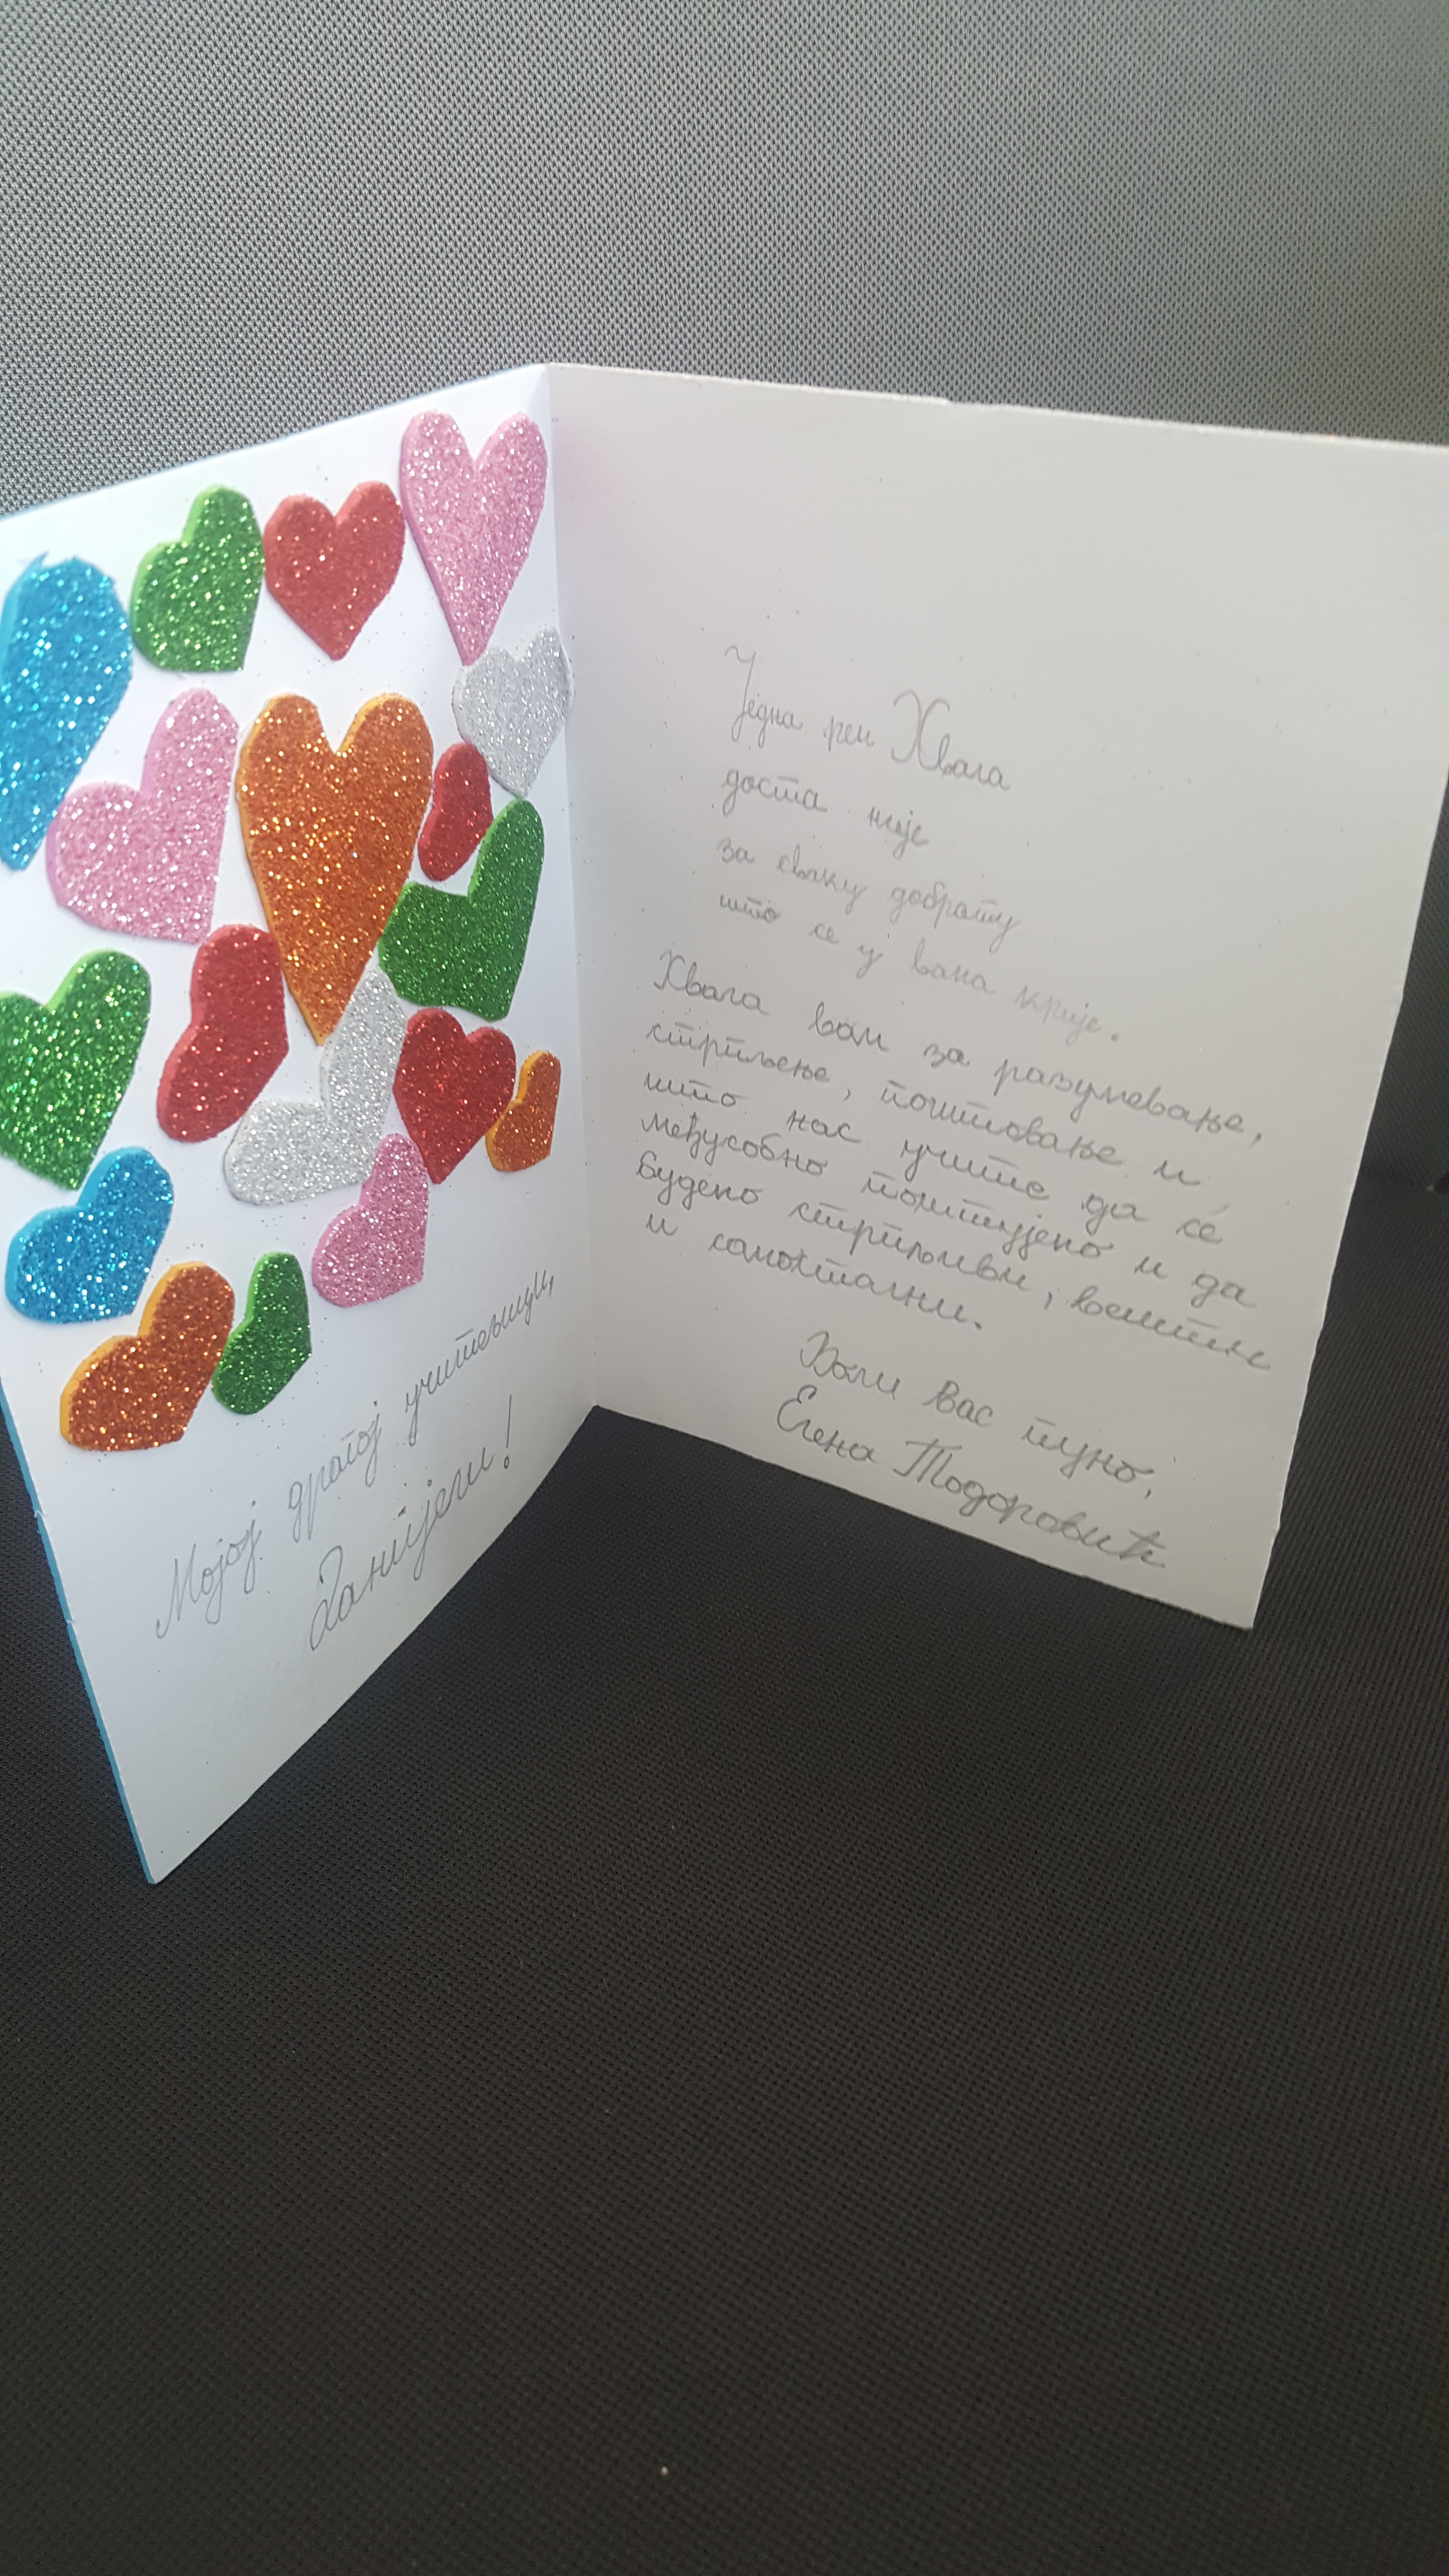 Мојој драгој учитељици,
Данијели!
Једна реч Хвала
доста није
за сваку доброту
што се у вама крије.
Хвала вам за разумевање,
стрпљење, поштовање и
што нас учите да се
међусобно поштујемо и да
будемо стрпљиви, вештих
и самостални.
Воли Вас пуно,
Елена Тодоровић